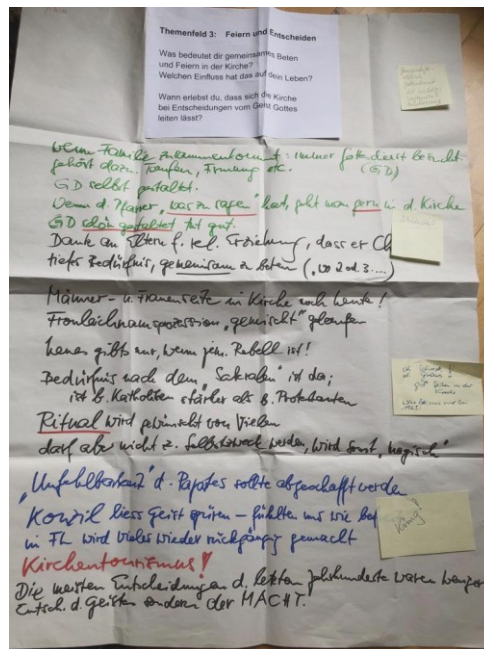 Themenfeld 3: Feiern und Entscheiden
Was bedeutet dir gemeinsames Beten
und Feiern in der Kirche?
Welchen Einfluss hat das auf dein Leben?
Wann erlebst du, dass sich die Kirche
bei Entscheidungen vom Geist Gottes
leiten lässt?
Wenn Familie zusammenkommt: immer Gottesdienst besucht
(GD)
gehört dazu. Taufen, Firmung etc.
GD selbst gestaltet.
Wenn d. Pfarrer "was zu sagen" hat, geht man gern in d. Kirche
GD schön gestaltet tut gut.
Danke an Eltern f. rel. Erziehung, dass er
tiefes Bedürfnis, gemeinsam zu beten ("wo 2 od. 3....)
Männer- u. Frauenseite in Kirche noch heute!
Fronleichnamsprozession "gemischt" gelaufen
gibts nur, wenn jem. Rebell ist!
Bedürfnis nach dem "Sakralen" ist da;
ist b. Katholiken stärker als b. Protestanten
Ritual wird gewünscht von Vielen
darf aber nicht z. Selbstzweck werden, wird sonst "magisch"
"Unfehlbarkeit" d. Papstes sollte abgeschafft werden
Konzil liess Geist spüren – fühlten uns wie
in FL wird vieles wieder rückgängig gemacht
Kirchentourismus!
Die meisten Entscheidungen d. letzten Jahrhunderte waren weniger
Entsch. d. Geistes sondern der MACHT.